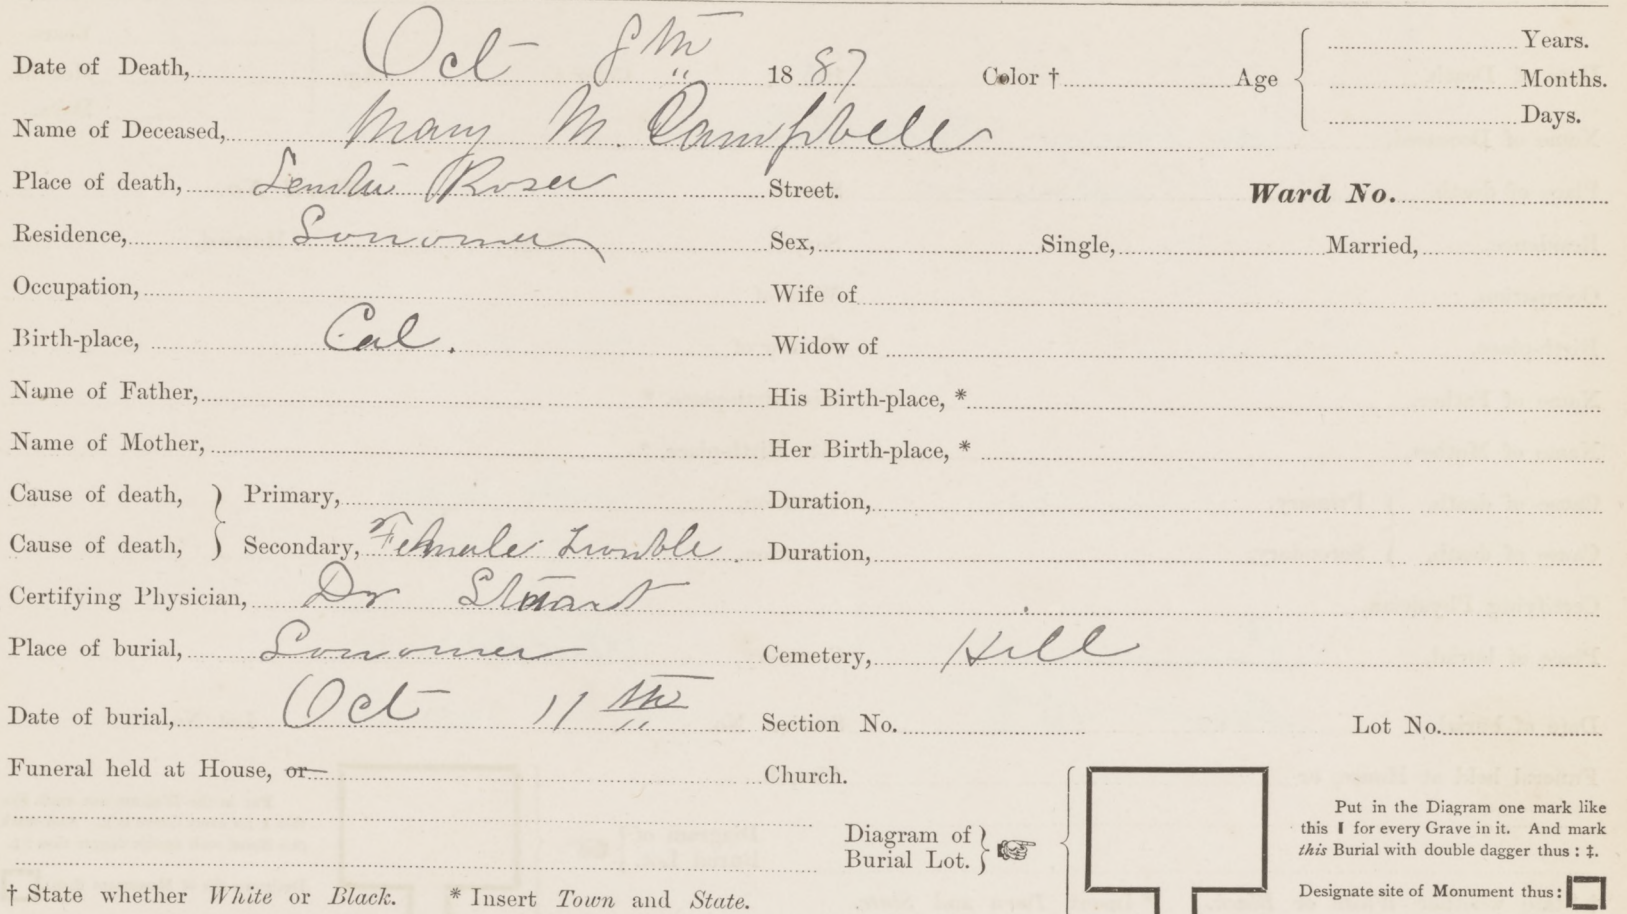 Date of Death, Oct 8th 1887 Color † Age Years.
Months.
Days.
Name of Deceased, Mary M. Campbell
Place of death, Santa Rosa Street. Ward No.
Residence, Sonoma Sex, Single, Married,
Occupation, Wife of
Birth-place, Cal. Widow of
Name of Father, His Birth-place, *
Name of Mother, Her Birth-place, *
Cause of death, Primary, Duration,
Cause of death, Secondary, Female Trouble Duration,
Certifying Physician, Dr Stuart
Place of burial, Sonoma Cemetery, Hill
Date of burial, Oct 11th Section No. Lot No.
Funeral held at House, or Church.
Diagram of Burial Lot.
Put in the Diagram one mark like
this ❙ for every Grave in it. And mark
this Burial with double dagger thus: ‡.
Designate site of Monument thus:
† State whether White or Black. * Insert Town and State.